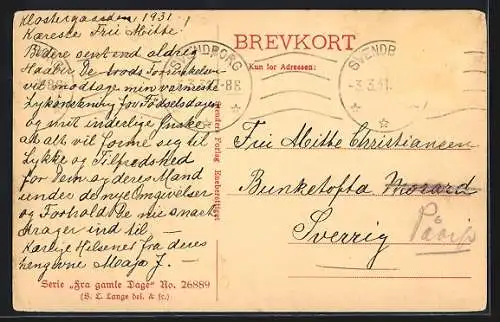 Klostergaarden 1931.
Kæreste Frii Mitte
Bedre sent end aldrig
Haaber De trods Forsinkelsen
vil modtage min varmeste
Lykønskning for Fødselsdagen
og mit inderlige Ønske
at alt vil forme sig til
Lykke og Tilfredshed
for Dem og deres Mand
under de nye Omgivelser
og Forhold De nu snart
drager ind til —
Kærlige Hilsener fra deres
hengivne Maja J. —
Serie „Fra gamle Dage" No. 26889
(S. L. Lange del. & fc.)
Eneberettiget
SVENDBORG
-8E
BREVKORT
Kun for Adressen:
SVENDB
-3.3.31.
Frii Mitte Christiansen
Bunketofta
Sverrig
Påarp